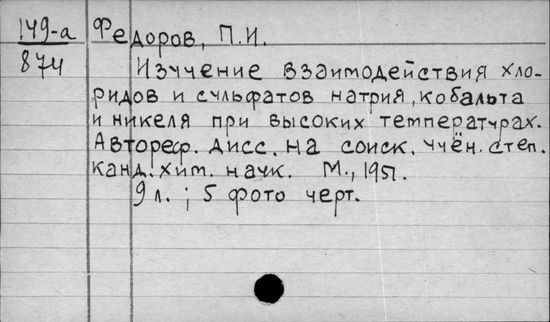 149-а Федоров, П.И.
874
Изучение взаимодействия хло-
ридов и сульфатов натрия, кобальта
и никеля при высоких температурах.
Автореф. дисс. на соиск. учён. степ.
канд. хим. наук. М., 1951.
9 л. ; 5 фото черт.